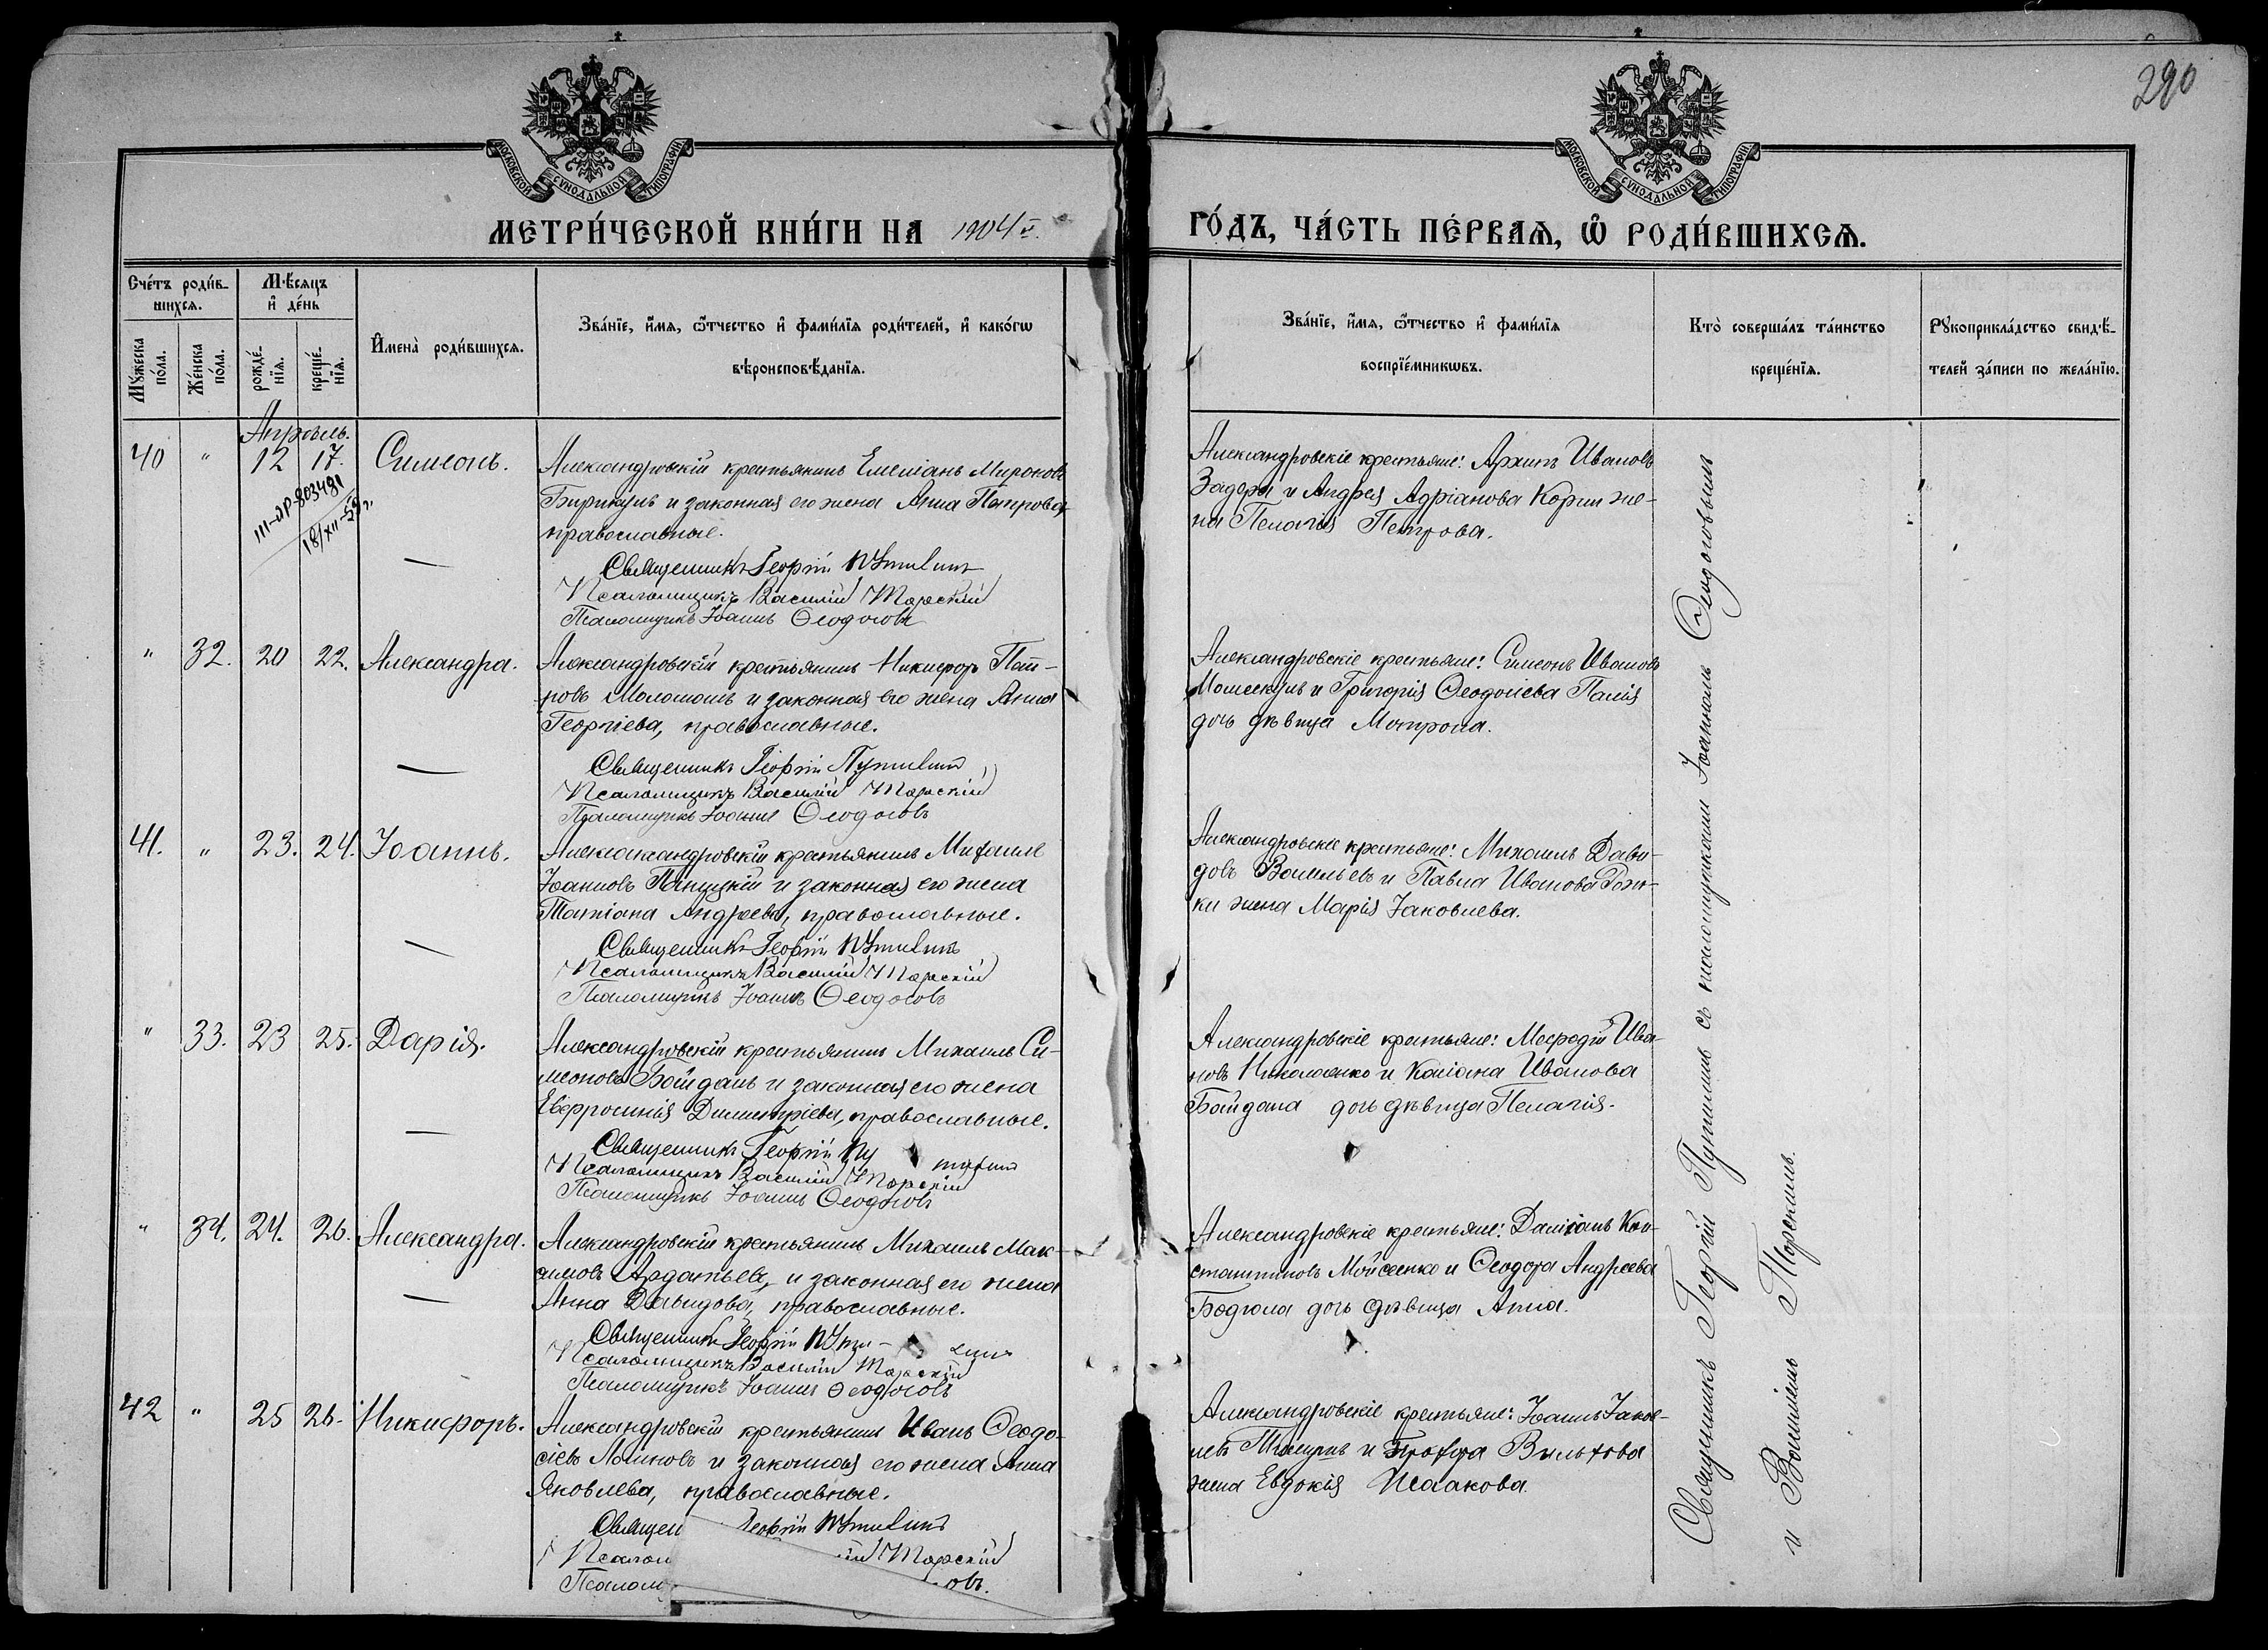 290
МОСКОВСКОЙ СѴНОДАЛЬНОЙ ТИПОГРАФІИ
МОСКОВСКОЙ СѴНОДАЛЬНОЙ ТИПОГРАФІИ
МЕТРИ́ЧЕСКОЙ КНИ́ГИ НА 1904 г.
ГО́ДЪ, ЧА́СТЬ ПЕ́РВАѦ, Ѽ РОДИ́ВШИХСѦ.
Сче́тъ роди́в-
шихсѧ.
Мѣ́сѧцъ
и҆ де́нь
Мꙋ́жеска
по́ла.
Же́нска
по́ла.
рожде́-
нїѧ.
креще́-
нїѧ.
И҆мена̀ роди́вшихсѧ.
Зва́нїе, и҆́мѧ, ѻ҆́тчество и҆ фами́лїѧ роди́телей, и҆ како́гѡ
вѣроисповѣ́данїѧ.
Зва́нїе, и҆́мѧ, ѻ҆́тчество и҆ фами́лїѧ
воспрїе́мникѡвъ.
Кто̀ соверша́лъ та́инство
креще́нїѧ.
Рꙋкоприкла́дство свидѣ́-
телей за́писи по жела́нїю.
Апрѣль.
40 " 12 17. Симеонъ.
III-АР-803481
18/XII-58 г.
Александровскій крестьянинъ Емеліанъ Мироновъ
Бирикулъ и законная его жена Анна Петрова
православные.
Священникъ Георгій Путилинъ
Псаломщикъ Василій Торскій
Псаломщикъ Іоаннъ Ѳеодосовъ
Александровскіе крестьяне: Архипъ Ивановъ
Задера и Андрея Адріанова Корни же-
на Пелагія Петрова.
" 32. 20 22. Александра.
Александровскій крестьянинъ Никифоръ Пет-
ровъ Моломанъ и законная его жена Анна
Георгіева, православные.
Священникъ Георгій Путилинъ
Псаломщикъ Василій Торскій
Псаломщикъ Іоаннъ Ѳеодосовъ
Александровскіе крестьяне: Симеонъ Ивановъ
и Григорія Ѳеодосіева Палія
дочь дѣвица Матрона.
41. " 23. 24. Іоаннъ.
Алексаксандровскій крестьянинъ Михаилъ
Іоанновъ и законная его жена
Татіана Андреева, православные.
Священникъ Георгій Путилинъ
Псаломщикъ Василій Торскій
Псаломщикъ Іоаннъ Ѳеодосовъ
Александровскіе крестьяне: Михаилъ Дави-
довъ Васильевъ и Павла Иванова
жена Марія Іаковлева.
" 33. 23 25. Дарія.
Александровскій крестьянинъ Михаилъ Си-
меоновъ Бойданъ и законная его жена
Евфросинія Димитріева, православные.
Священникъ Георгій Пу тилинъ
Псаломщикъ Василій Торскій
Псаломщикъ Іоаннъ Ѳеодосовъ
Александровскіе крестьяне: Меѳодій Ива-
новъ Николаенко и Касіана Иванова
Бойдана дочь дѣвица Пелагія.
" 34. 24. 26. Александра.
Александровскій крестьянинъ Михаилъ Мак-
симовъ Ардатьевъ, и законная его жена
Анна Давидова, православные.
Священникъ Георгій Пути- линъ
Псаломщикъ Василій Торскій
Псаломщикъ Іоаннъ Ѳеодосовъ
Александровскіе крестьяне: Даміанъ Кон-
стантиновъ Мойсеенко и Ѳеодора Андреева
Бодюла дочь дѣвица Анна.
42 " 25 26. Никифоръ.
Александровскій крестьянинъ Иванъ Ѳеодо-
сіевъ Логиновъ и законная его жена Анна
Яковлева, православные.
Священ Георгій Путилинъ
Псалом ій Торскій
Псалом овъ.
Александровскіе крестьяне: Іоаннъ Іаков-
левъ и Вильхова
жена Евдокія Исаакова.
Священникъ Георгій Путилинъ съ псаломщиками Іоанномъ Ѳеодосовымъ
и Василіемъ Торскимъ.